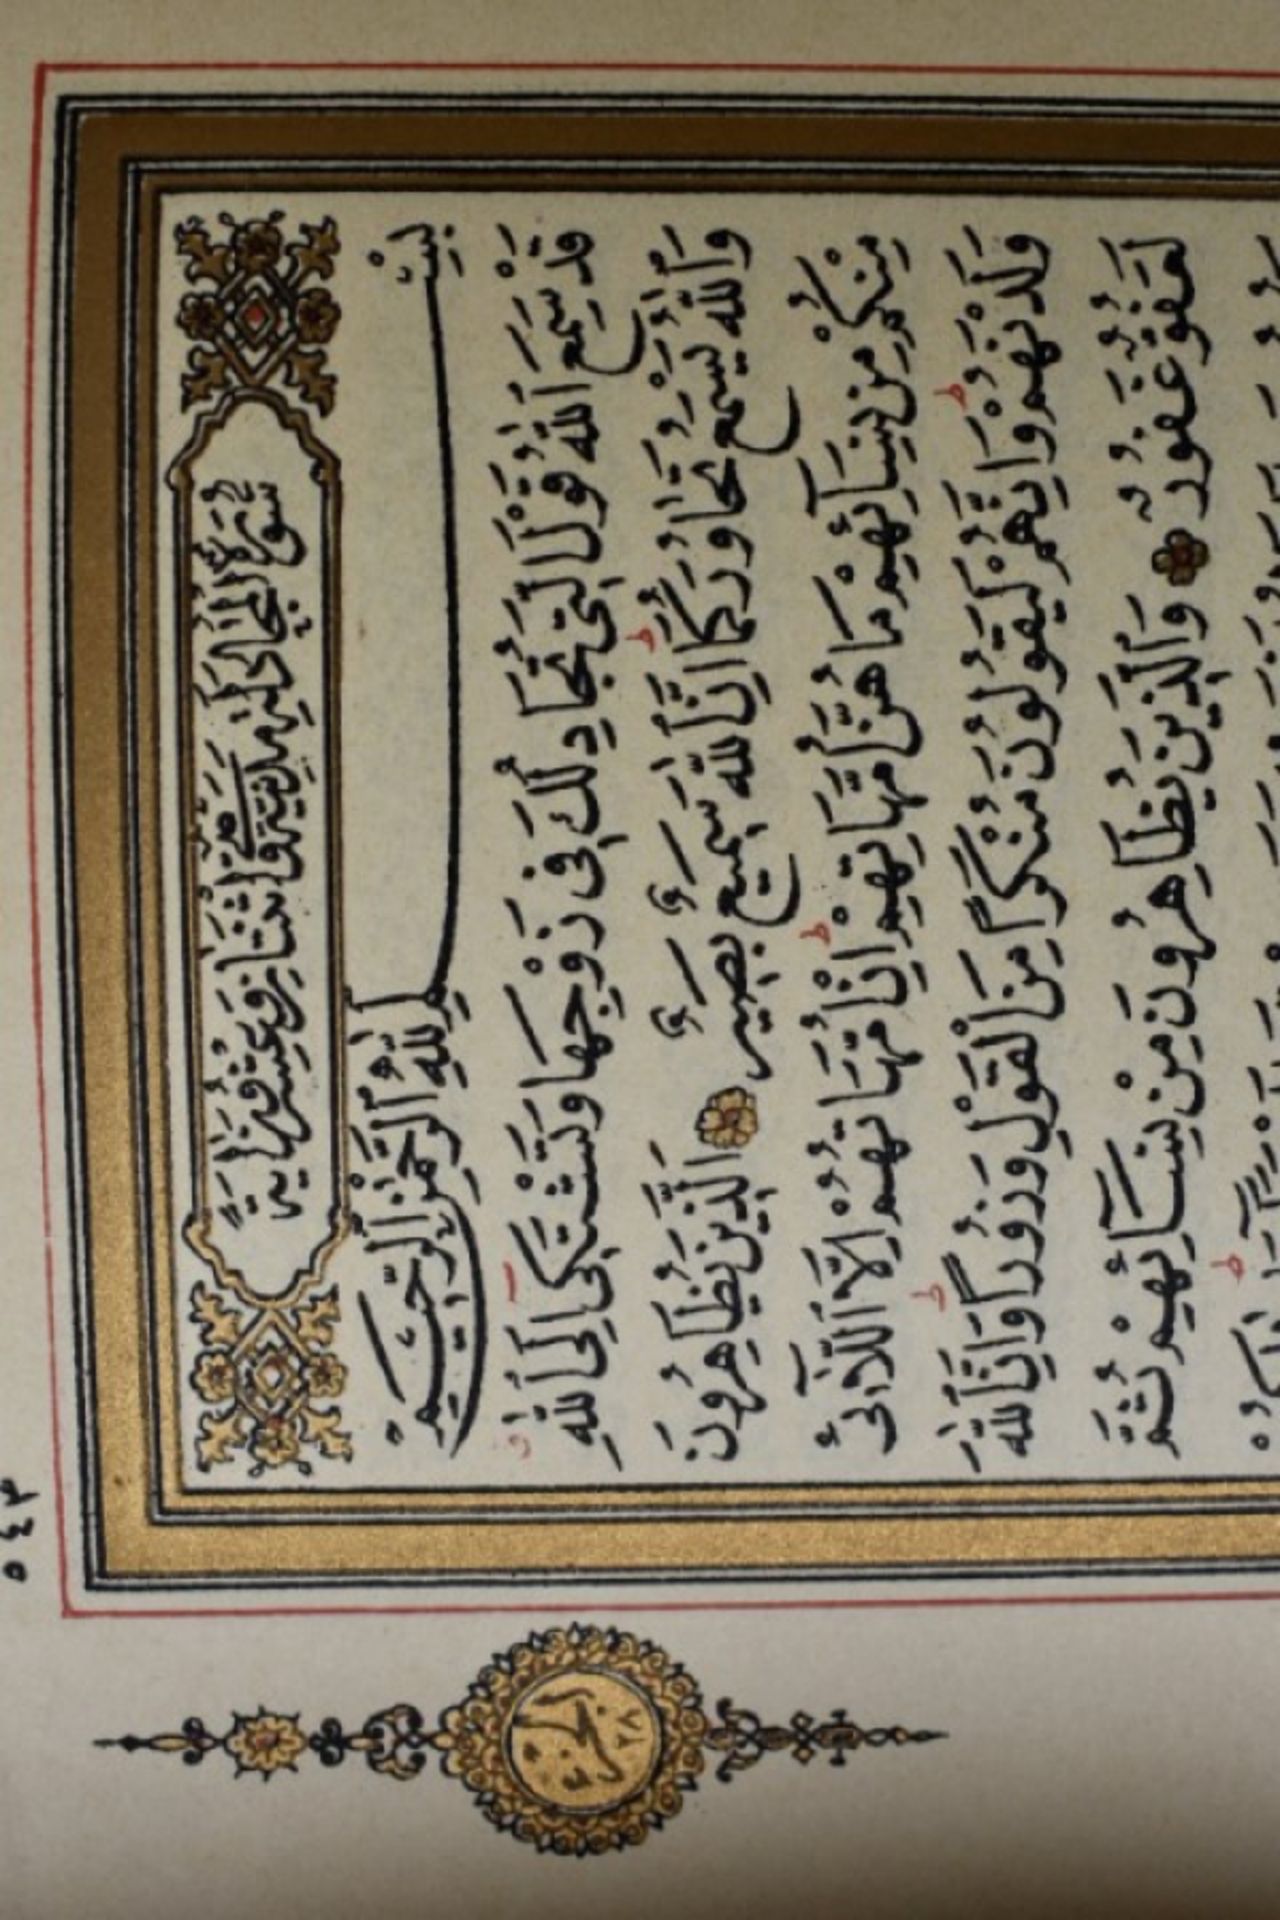 ٥٤٣
سُورَةُ الْمُجَادَلَةِ مَدَنِيَّةٌ وَهِيَ اثْنَتَانِ وَعِشْرُونَ اٰيَةً
بِسْمِ اللّٰهِ الرَّحْمٰنِ الرَّحِيمِ
قَدْ سَمِعَ اللّٰهُ قَوْلَ الَّتِى تُجَادِلُكَ فِى زَوْجِهَا وَتَشْتَكِى اِلَى اللّٰهِ
وَاللّٰهُ يَسْمَعُ تَحَاوُرَكُمَا اِنَّ اللّٰهَ سَمِيعٌ بَصِيرٌ ۞ اَلَّذِينَ يُظَاهِرُونَ
مِنْكُمْ مِنْ نِسَآئِهِمْ مَا هُنَّ اُمَّهَاتِهِمْ اِنْ اُمَّهَاتُهُمْ اِلَّا الّٰٓائِ
وَلَدْنَهُمْ وَاِنَّهُمْ لَيَقُولُونَ مُنْكَرًا مِنَ الْقَوْلِ وَزُورًا وَاِنَّ اللّٰهَ
لَعَفُوٌّ غَفُورٌ ۞ وَالَّذِينَ يُظَاهِرُونَ مِنْ نِسَآئِهِمْ ثُمَّ
الجزء
٢٨